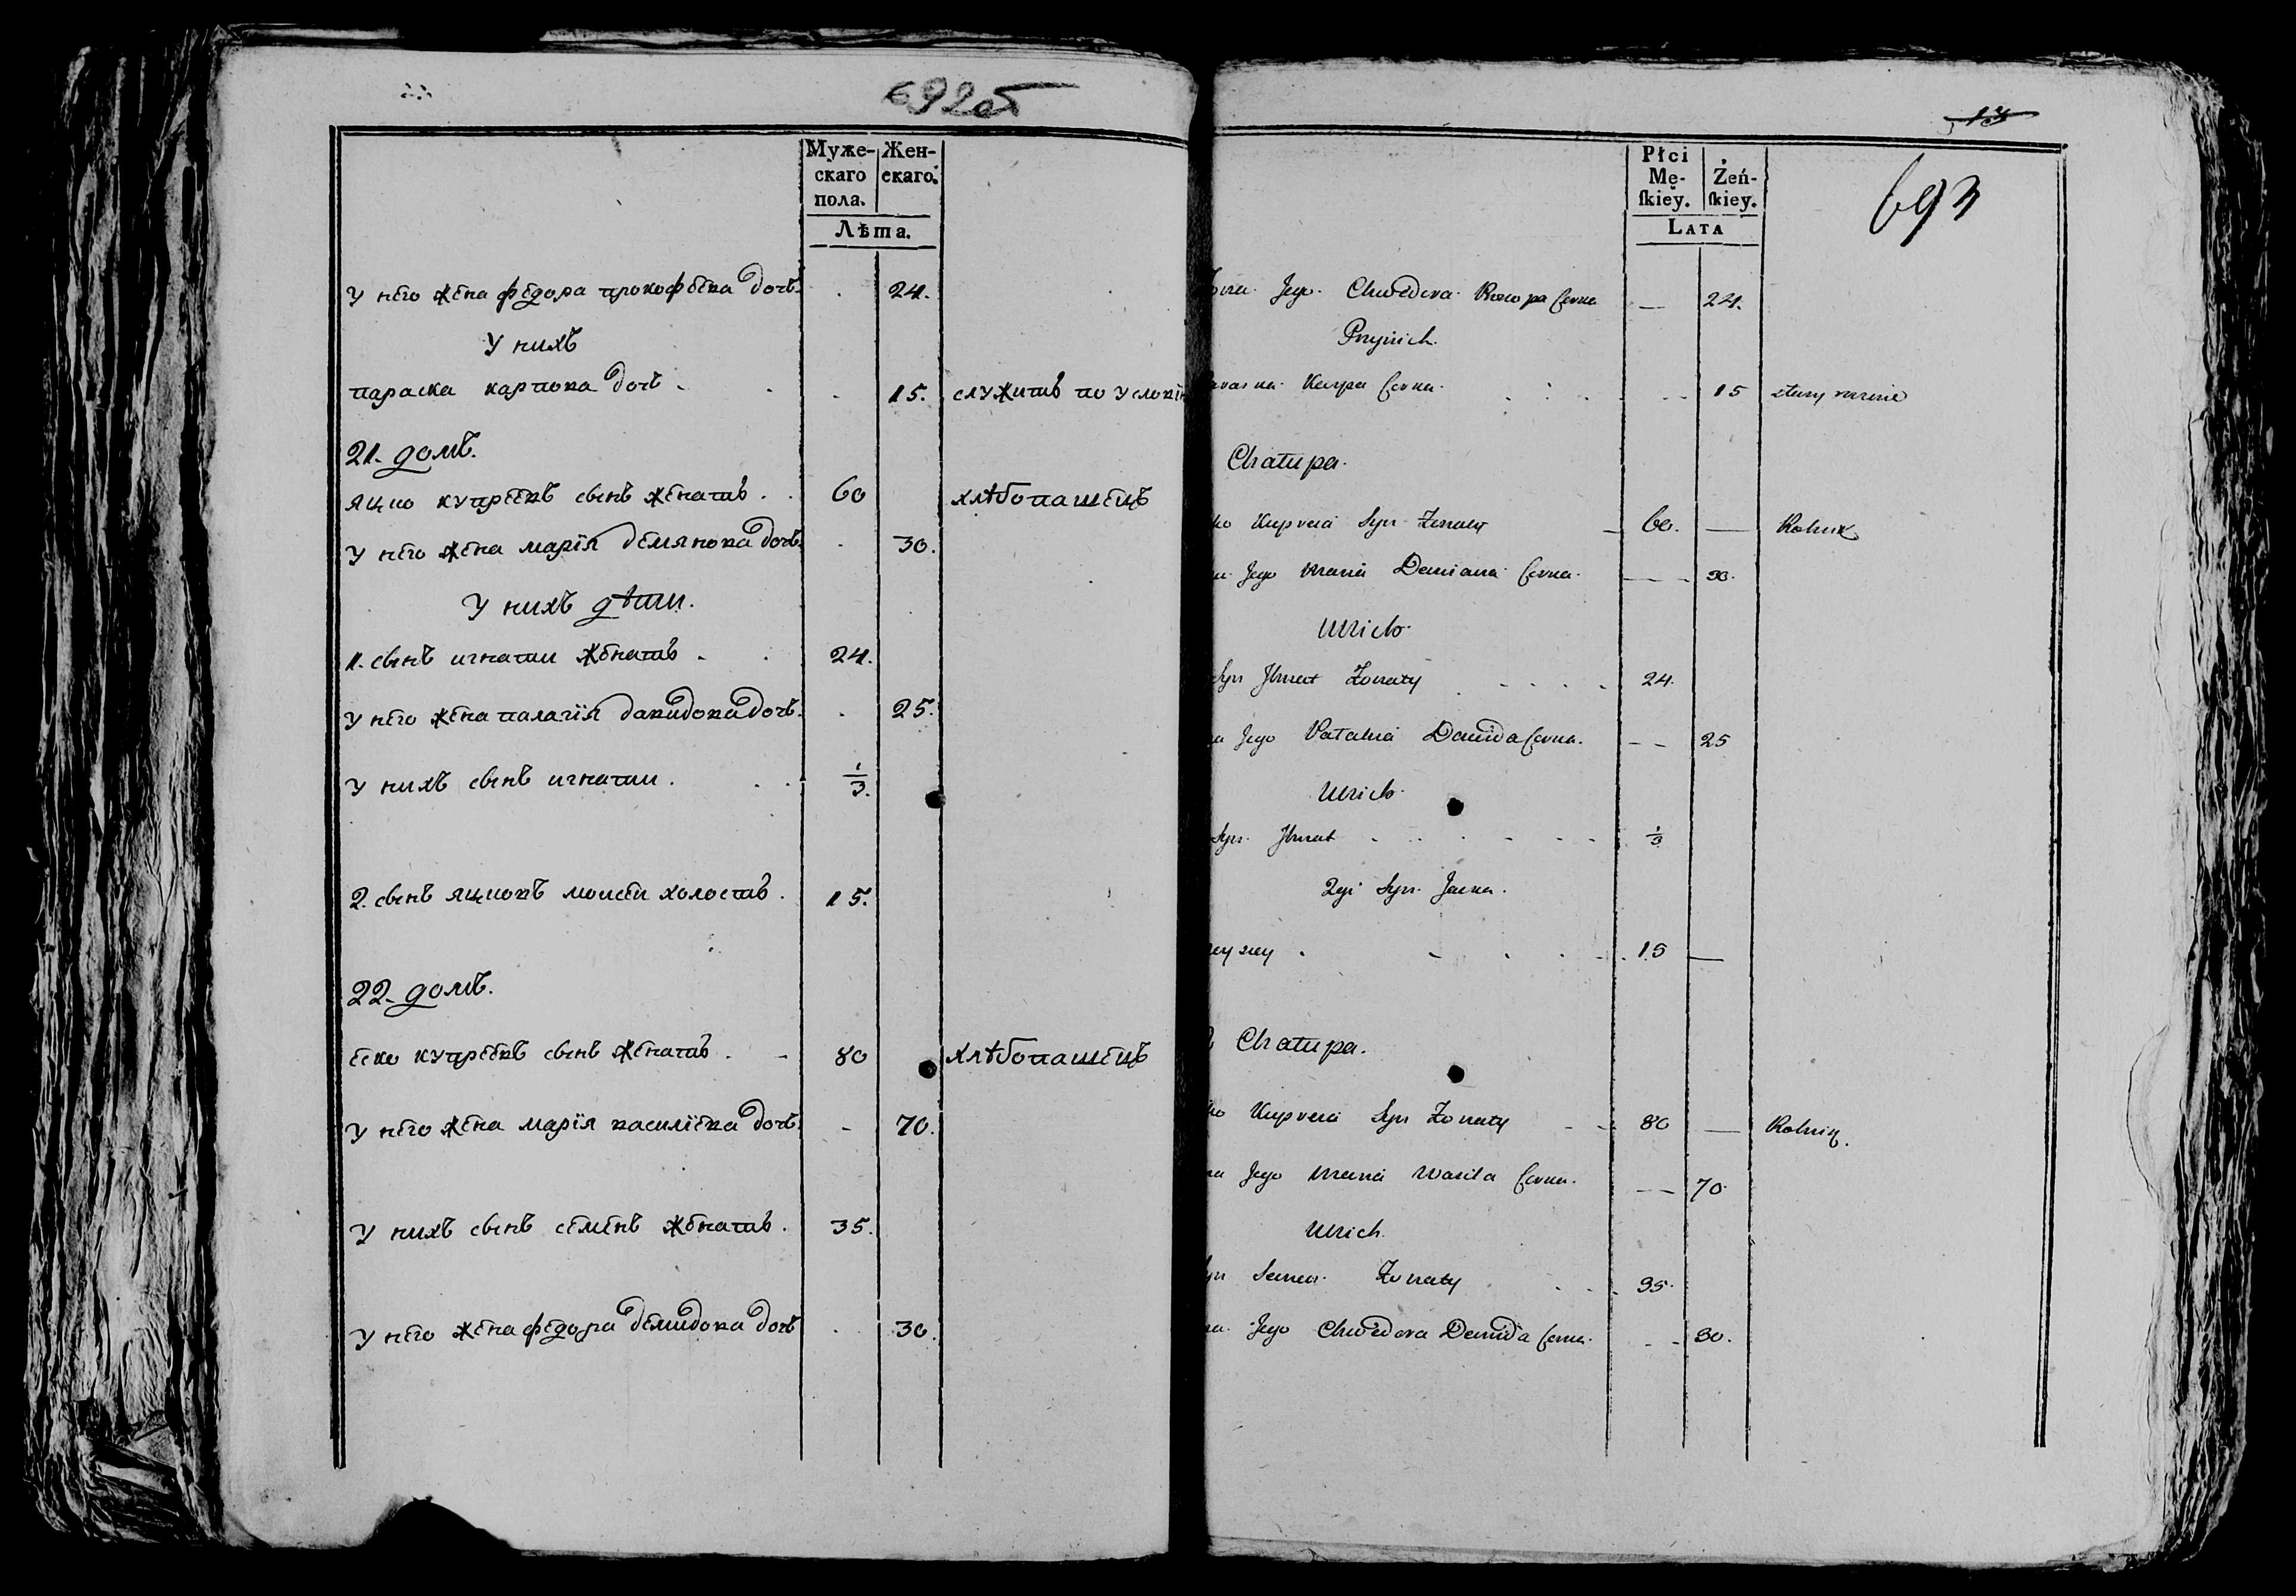 692об
Муже-
скаго
пола.
Жен-
скаго.
Лѣта.
У него жена федора прокофѣева дочь. 24.
У нихъ
параска карпова дочь . . 15. служитъ по условію
21. домъ.
яцко купрѣевъ сынъ женатъ . . 60 хлѣбопашецъ
У него жена марія демянова дочь. 30.
У нихъ дѣти.
1. сынъ игнатии женатъ . . 24.
У него жена палагія давидова дочь. 25.
У нихъ сынъ игнатии . . . 1/3.
2. сынъ яцковъ моисеи холостъ . 15.
22. домъ.
еско купрѣевъ сынъ женатъ . - 80 хлѣбопашецъ
У него жена марія василіева дочь. - 70.
У нихъ сынъ семенъ женатъ . 35.
У него жена федора демидова дочь 30.
13
693
Płci
Mę-
ſkiey.
Żeń-
ſkiey.
LATA
Jego Chwedora Prokopa Corka — 24.
Przynich.
Karpa Corka . . . 15
Chałupa.
ko Kupreia Syn Żonaty 60. — Rolnik
Jego Maria Demiana Corka 30.
U Nich
Syn Ihnat Żonaty . . . 24.
Jego Pałahia Dawida Corka. — 25
U Nich
Syn Ihnat . . . 1/3
2gi Syn Jacka.
15 —
Chałupa.
ko Kupreia Syn Żonaty 80 — Rolnik.
Jego Maria Wasila Corka. — 70.
U Nich
Syn Semen Żonaty . . . 35.
Jego Chwedora Demida Corka 30.